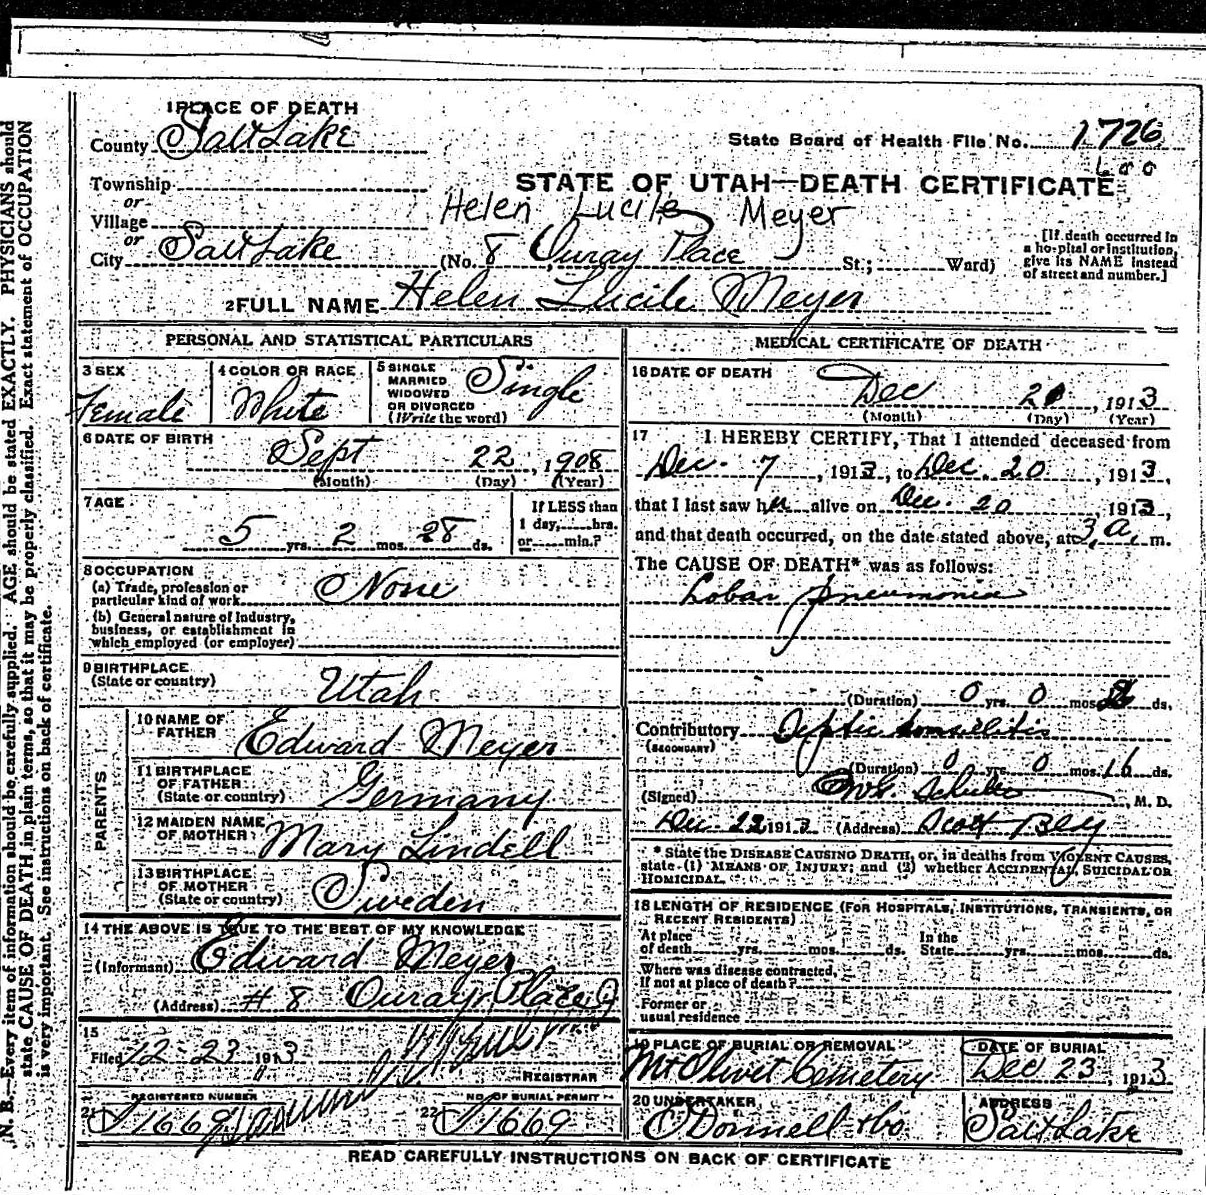 1 PLACE OF DEATH
County Salt Lake
State Board of Health File No. 1726
600
Township
or
Village
or
City Salt Lake
STATE OF UTAH—DEATH CERTIFICATE
Helen Lucile Meyer
(No. 8 Ouray Place St.; Ward)
[If death occurred in
a hospital or institution,
give its NAME instead
of street and number.]
2 FULL NAME Helen Lucile Meyer
PERSONAL AND STATISTICAL PARTICULARS
3 SEX
Female
4 COLOR OR RACE
White
5 SINGLE
MARRIED
WIDOWED
OR DIVORCED
(Write the word)
Single
6 DATE OF BIRTH
Sept 22, 1908
(Month) (Day) (Year)
7 AGE
5 yrs. 2 mos. 28 ds.
If LESS than
1 day, hrs.
or min.?
8 OCCUPATION
(a) Trade, profession or
particular kind of work None
(b) General nature of industry,
business, or establishment in
which employed (or employer)
9 BIRTHPLACE
(State or country) Utah
PARENTS
10 NAME OF
FATHER Edward Meyer
11 BIRTHPLACE
OF FATHER
(State or country) Germany
12 MAIDEN NAME
OF MOTHER Mary Lindell
13 BIRTHPLACE
OF MOTHER
(State or country) Sweden
14 THE ABOVE IS TRUE TO THE BEST OF MY KNOWLEDGE
(Informant) Edward Meyer
(Address) # 8 Ouray Place
15
Filed 12-23 1913
REGISTRAR
REGISTERED NUMBER
21 1669
NO. OF BURIAL PERMIT
22 1669
MEDICAL CERTIFICATE OF DEATH
16 DATE OF DEATH
Dec 20, 1913
(Month) (Day) (Year)
17 I HEREBY CERTIFY, That I attended deceased from
Dec. 7, 1913, to Dec. 20, 1913,
that I last saw her alive on Dec. 20 1913,
and that death occurred, on the date stated above, at 3 a. m.
The CAUSE OF DEATH* was as follows:
Lobar pneumonia
(Duration) 0 yrs. 0 mos. ds.
Contributory Septic tonsillitis
(SECONDARY)
(Duration) 0 yrs. 0 mos. 16 ds.
(Signed) M. D.
Dec. 22 1913 (Address) Scott Bldg
* State the DISEASE CAUSING DEATH, or, in deaths from VIOLENT CAUSES,
state (1) MEANS OF INJURY; and (2) whether ACCIDENTAL, SUICIDAL OR
HOMICIDAL.
18 LENGTH OF RESIDENCE (FOR HOSPITALS, INSTITUTIONS, TRANSIENTS, OR
RECENT RESIDENTS)
At place
of death yrs. mos. ds.
In the
State yrs. mos. ds.
Where was disease contracted,
if not at place of death?
Former or
usual residence
19 PLACE OF BURIAL OR REMOVAL
Mt Olivet Cemetery
DATE OF BURIAL
Dec 23, 1913
20 UNDERTAKER
O'Donnell & Co
ADDRESS
Salt Lake
READ CAREFULLY INSTRUCTIONS ON BACK OF CERTIFICATE
N. B.—Every item of information should be carefully supplied. AGE should be stated EXACTLY. PHYSICIANS should
state CAUSE OF DEATH in plain terms, so that it may be properly classified. Exact statement of OCCUPATION
is very important. See instructions on back of certificate.